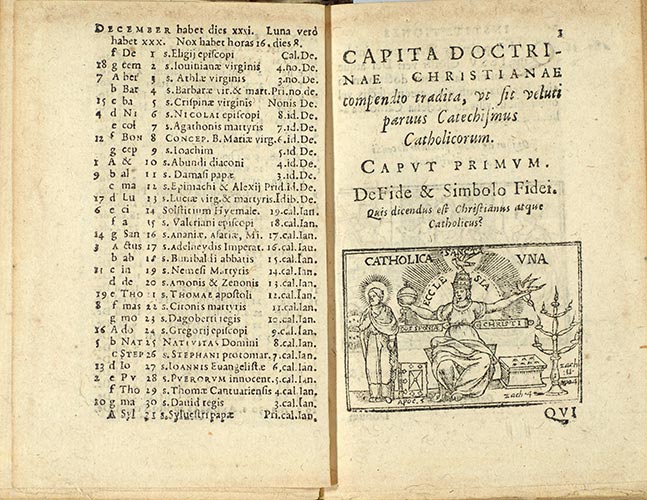 DECEMBER habet dies xxxi. Luna verò
habet xxx. Nox habet horas 16. dies 8.
f De 1 s.Eligij episcopi Cal.De.
18 g cem 2 s.Iouinianæ virginis 4.no.De.
7 A ber 3 s.Athlæ virginis 3.no.De.
b Bar 4 s.Barbaræ vir.& mart. Pri.no.de.
15 c ba 5 s.Crispinæ virginis Nonis De.
4 d Ni 6 s.NICOLAI episcopi 8.id.De.
e col 7 s.Agathonis martyris 7.id.De.
12 f BON 8 CONCEP. B. Mariæ virg. 6.id.De.
1 g cep 9 s.Ioachim 5.id.De.
1 A & 10 s.Abundi diaconi 4.id.De.
9 b al 11 s.Damasi papæ 3.id.De.
c ma 12 s.Epimachi & Alexij Prid.Id.De.
17 d Lu 13 s.Luciæ virg.& martyris.Idib.De.
6 e ci 14 Solstitium Hyemale. 19.cal.Ian.
f a 15 s.Valeriani episcopi 18.cal.Ian.
14 g San 16 s.Ananiæ, Asariæ, Mi. 17.cal.Ian.
3 A ctus 17 s.Adelheydis Imperat. 16.cal.Ian.
b ab 18 s.Bunibaldi abbatis 15.cal.Ian.
11 c in 19 s.Nemesi Martyris 14.cal.Ian.
d de 20 s.Amonis & Zenonis 13.cal.Ian.
19 e THO 21 s.THOMAE apostoli 12.cal.Ian.
8 f mas 22 s.Cironis martyris 11.cal.Ian.
g mo 23 s.Dagoberti regis 10.cal.Ian.
16 A do 24 s.Gregorij episcopi 9.cal.Ian.
5 b NAT 25 NATIVITAS Domini 8.cal.Ian.
c STEP 26 s.STEPHANI protomar. 7.cal.Ian.
13 d Io 27 s.IOANNIS Euangelistæ 6.cal.Ian.
2 e PV 28 s.PVERORVM innocent. 5.cal.Ian.
f Tho 29 s.Thomæ Cantuariensis 4.cal.Ian.
10 g ma 30 s.Dauid regis 3.cal.Ian.
A Syl 31 s.Syluestri papæ Pri.cal.Ian.
1
CAPITA DOCTRI-
NAE CHRISTIANAE
compendio tradita, vt sit veluti
paruus Catechismus
Catholicorum.
CAPVT PRIMVM.
De Fide & Simbolo Fidei.
Quis dicendus est Christianus atque
Catholicus?
CATHOLICA SANCTA VNA
ECCLESIA
SPONSA CHRISTI
Apoc.
zach 4
zach
apo 4
QVI